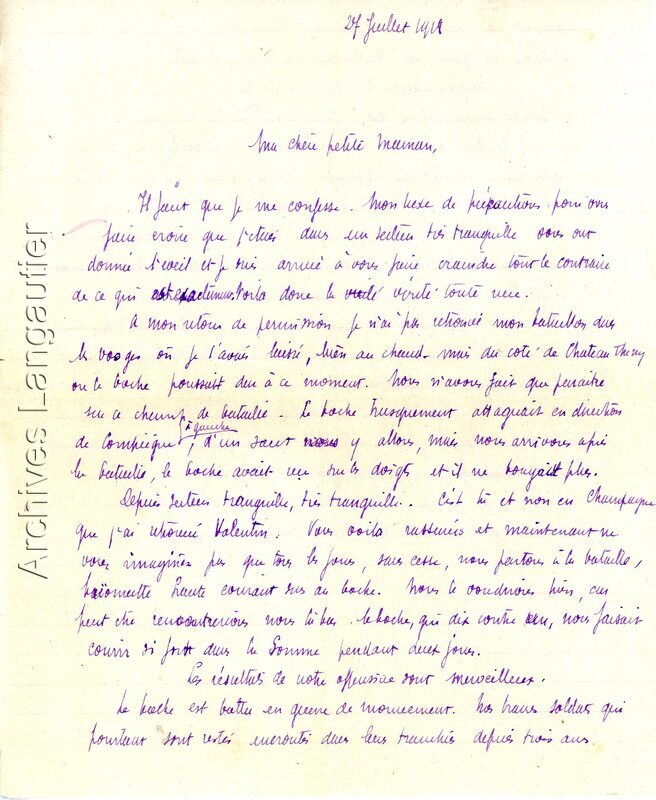 27 Juillet 1918
Ma chère petite Maman,
Il faut que je me confesse. Mon luxe de précautions pour vous
faire croire que j'étais dans un secteur très tranquille vous ont
donné l'éveil et je suis arrivé à vous faire craindre tout le contraire
de ce qui est exactement. Voilà donc la vérité toute nue.
A mon retour de permission je n'ai pas retrouvé mon bataillon dans
les Vosges où je l'avais laissé, bien au chaud mais du côté de Chateau Thierry
ou le boche poussait dur à ce moment. Nous n'avons fait que paraitre
sur ce champ de bataille. Le boche brusquement attaquait en direction
de Compiègne, à gauche, d'un saut nous y allons, mais nous arrivons après
la bataille, le boche avait eu sur les doigts et il ne bougeait plus.
Depuis secteur tranquille, très tranquille.. C'est là et non en Champagne
que j'ai retrouvé Valentin. Vous voilà rassurés et maintenant ne
vous imaginez pas que tous les jours, sans cesse, nous partons à la bataille,
baïonnette haute courant sus au boche. Nous le voudrions bien, car
peut être rencontrerions nous là bas le boche, qui dix contre un, nous faisait
courir si fort dans la Somme pendant deux jours.
Les résultats de notre offensive sont merveilleux.
Le boche est battu en guerre de mouvement. Nos braves soldats qui
pourtant sont restés encroutés dans leurs tranchées depuis trois ans
Archives Langautier